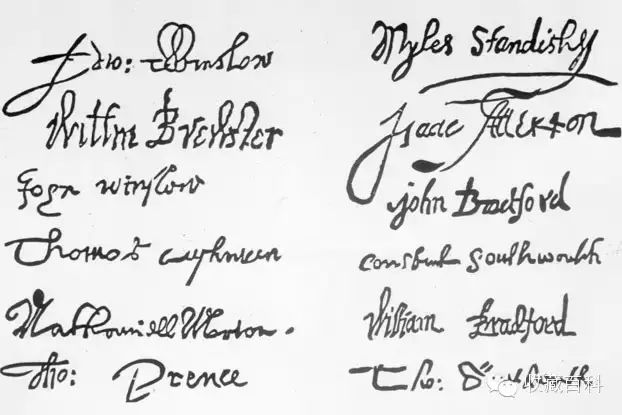 Edw: Winslow
Willm Brewster
John Winslow
Thomas Cushman
Nathaniell Morton.
Tho: Prence
Myles Standish
Isaac Allerton
John Bradford
Constant Southworth
William Bradford
Tho:
收藏百科